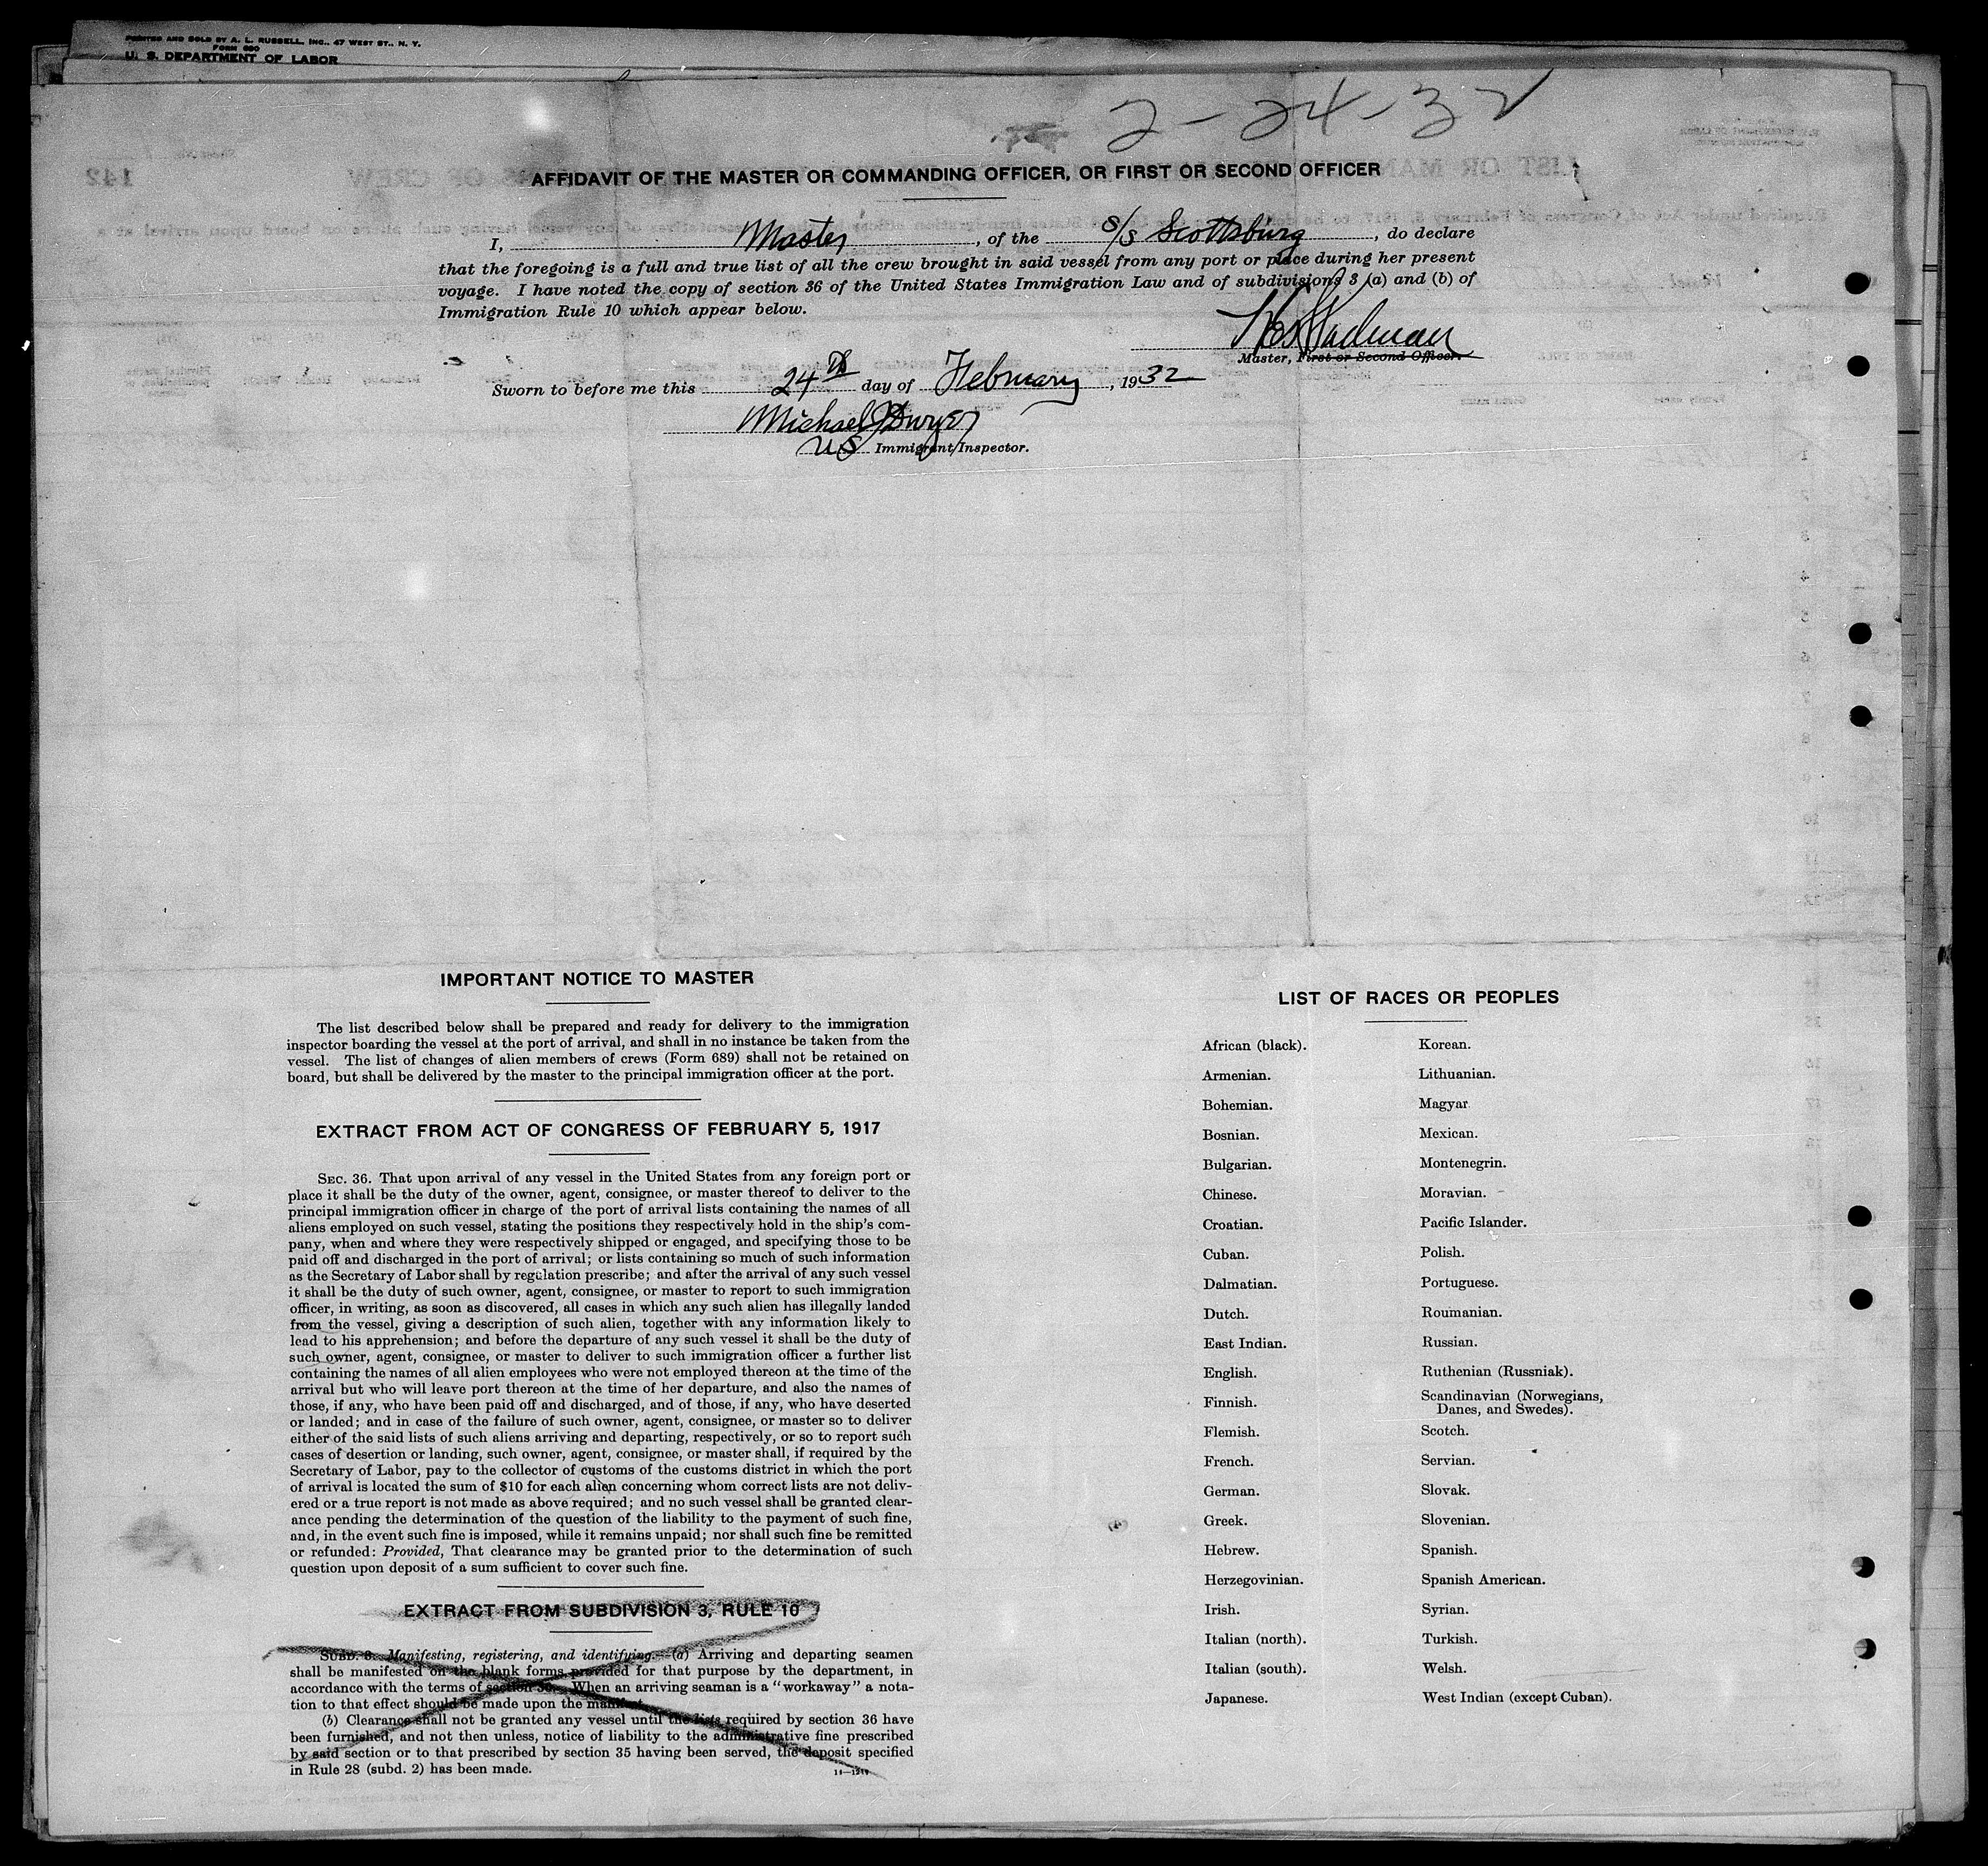 PRINTED AND SOLD BY A. L. RUSSELL, INC., 47 WEST ST., N. Y.
FORM 680
U. S. DEPARTMENT OF LABOR
2-24-32
AFFIDAVIT OF THE MASTER OR COMMANDING OFFICER, OR FIRST OR SECOND OFFICER
I, Master, of the S/S Scottsburg, do declare
that the foregoing is a full and true list of all the crew brought in said vessel from any port or place during her present
voyage. I have noted the copy of section 36 of the United States Immigration Law and of subdivisions 3 (a) and (b) of
Immigration Rule 10 which appear below.
Master, First or Second Officer.
Sworn to before me this 24th day of February, 1932
Michael J Dwyer
US Immigrant Inspector.
IMPORTANT NOTICE TO MASTER
The list described below shall be prepared and ready for delivery to the immigration
inspector boarding the vessel at the port of arrival, and shall in no instance be taken from the
vessel. The list of changes of alien members of crews (Form 689) shall not be retained on
board, but shall be delivered by the master to the principal immigration officer at the port.
EXTRACT FROM ACT OF CONGRESS OF FEBRUARY 5, 1917
SEC. 36. That upon arrival of any vessel in the United States from any foreign port or
place it shall be the duty of the owner, agent, consignee, or master thereof to deliver to the
principal immigration officer in charge of the port of arrival lists containing the names of all
aliens employed on such vessel, stating the positions they respectively hold in the ship's com-
pany, when and where they were respectively shipped or engaged, and specifying those to be
paid off and discharged in the port of arrival; or lists containing so much of such information
as the Secretary of Labor shall by regulation prescribe; and after the arrival of any such vessel
it shall be the duty of such owner, agent, consignee, or master to report to such immigration
officer, in writing, as soon as discovered, all cases in which any such alien has illegally landed
from the vessel, giving a description of such alien, together with any information likely to
lead to his apprehension; and before the departure of any such vessel it shall be the duty of
such owner, agent, consignee, or master to deliver to such immigration officer a further list
containing the names of all alien employees who were not employed thereon at the time of the
arrival but who will leave port thereon at the time of her departure, and also the names of
those, if any, who have been paid off and discharged, and of those, if any, who have deserted
or landed; and in case of the failure of such owner, agent, consignee, or master so to deliver
either of the said lists of such aliens arriving and departing, respectively, or so to report such
cases of desertion or landing, such owner, agent, consignee, or master shall, if required by the
Secretary of Labor, pay to the collector of customs of the customs district in which the port
of arrival is located the sum of $10 for each alien concerning whom correct lists are not deliv-
ered or a true report is not made as above required; and no such vessel shall be granted clear-
ance pending the determination of the question of the liability to the payment of such fine,
and, in the event such fine is imposed, while it remains unpaid; nor shall such fine be remitted
or refunded: Provided, That clearance may be granted prior to the determination of such
question upon deposit of a sum sufficient to cover such fine.
EXTRACT FROM SUBDIVISION 3, RULE 10
SUBD. 3. Manifesting, registering, and identifying.—(a) Arriving and departing seamen
shall be manifested on the blank forms provided for that purpose by the department, in
accordance with the terms of section 36. When an arriving seaman is a "workaway" a nota-
tion to that effect should be made upon the manifest.
(b) Clearance shall not be granted any vessel until the lists required by section 36 have
been furnished, and not then unless, notice of liability to the administrative fine prescribed
by said section or to that prescribed by section 35 having been served, the deposit specified
in Rule 28 (subd. 2) has been made.
LIST OF RACES OR PEOPLES
African (black).
Armenian.
Bohemian.
Bosnian.
Bulgarian.
Chinese.
Croatian.
Cuban.
Dalmatian.
Dutch.
East Indian.
English.
Finnish.
Flemish.
French.
German.
Greek.
Hebrew.
Herzegovinian.
Irish.
Italian (north).
Italian (south).
Japanese.
Korean.
Lithuanian.
Magyar
Mexican.
Montenegrin.
Moravian.
Pacific Islander.
Polish.
Portuguese.
Roumanian.
Russian.
Ruthenian (Russniak).
Scandinavian (Norwegians,
Danes, and Swedes).
Scotch.
Servian.
Slovak.
Slovenian.
Spanish.
Spanish American.
Syrian.
Turkish.
Welsh.
West Indian (except Cuban).